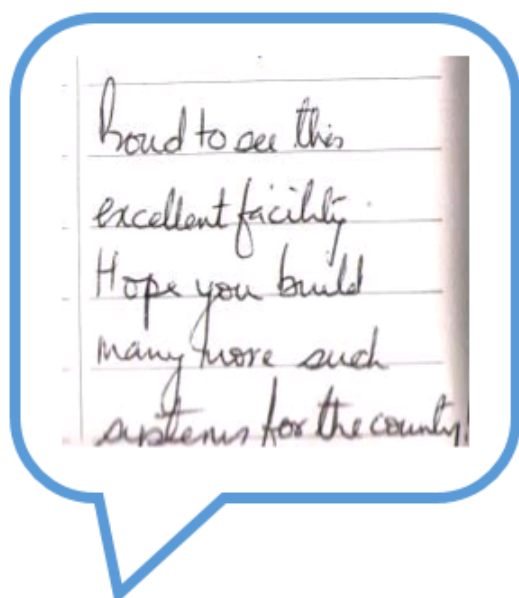 Proud to see this
excellent facility.
Hope you build
many more such
systems for the county!